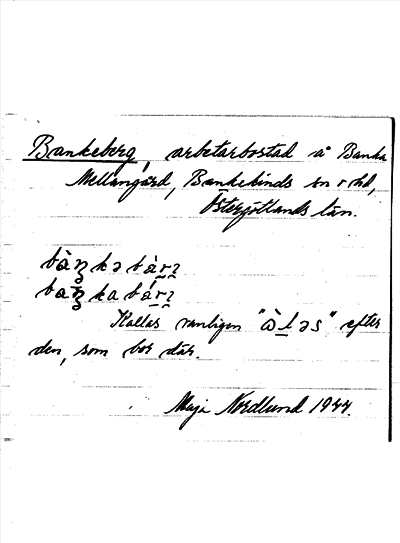 Bankeberg, arbetarbostad å Banka
Mellangård, Bankekinds sn o hd,
Östergötlands län.
bàŋkəbàrɪ
baŋkabárɪ
Kallas vanligen "ὼləs" efter
den, som bor där.
Maja Nordlund 1944.